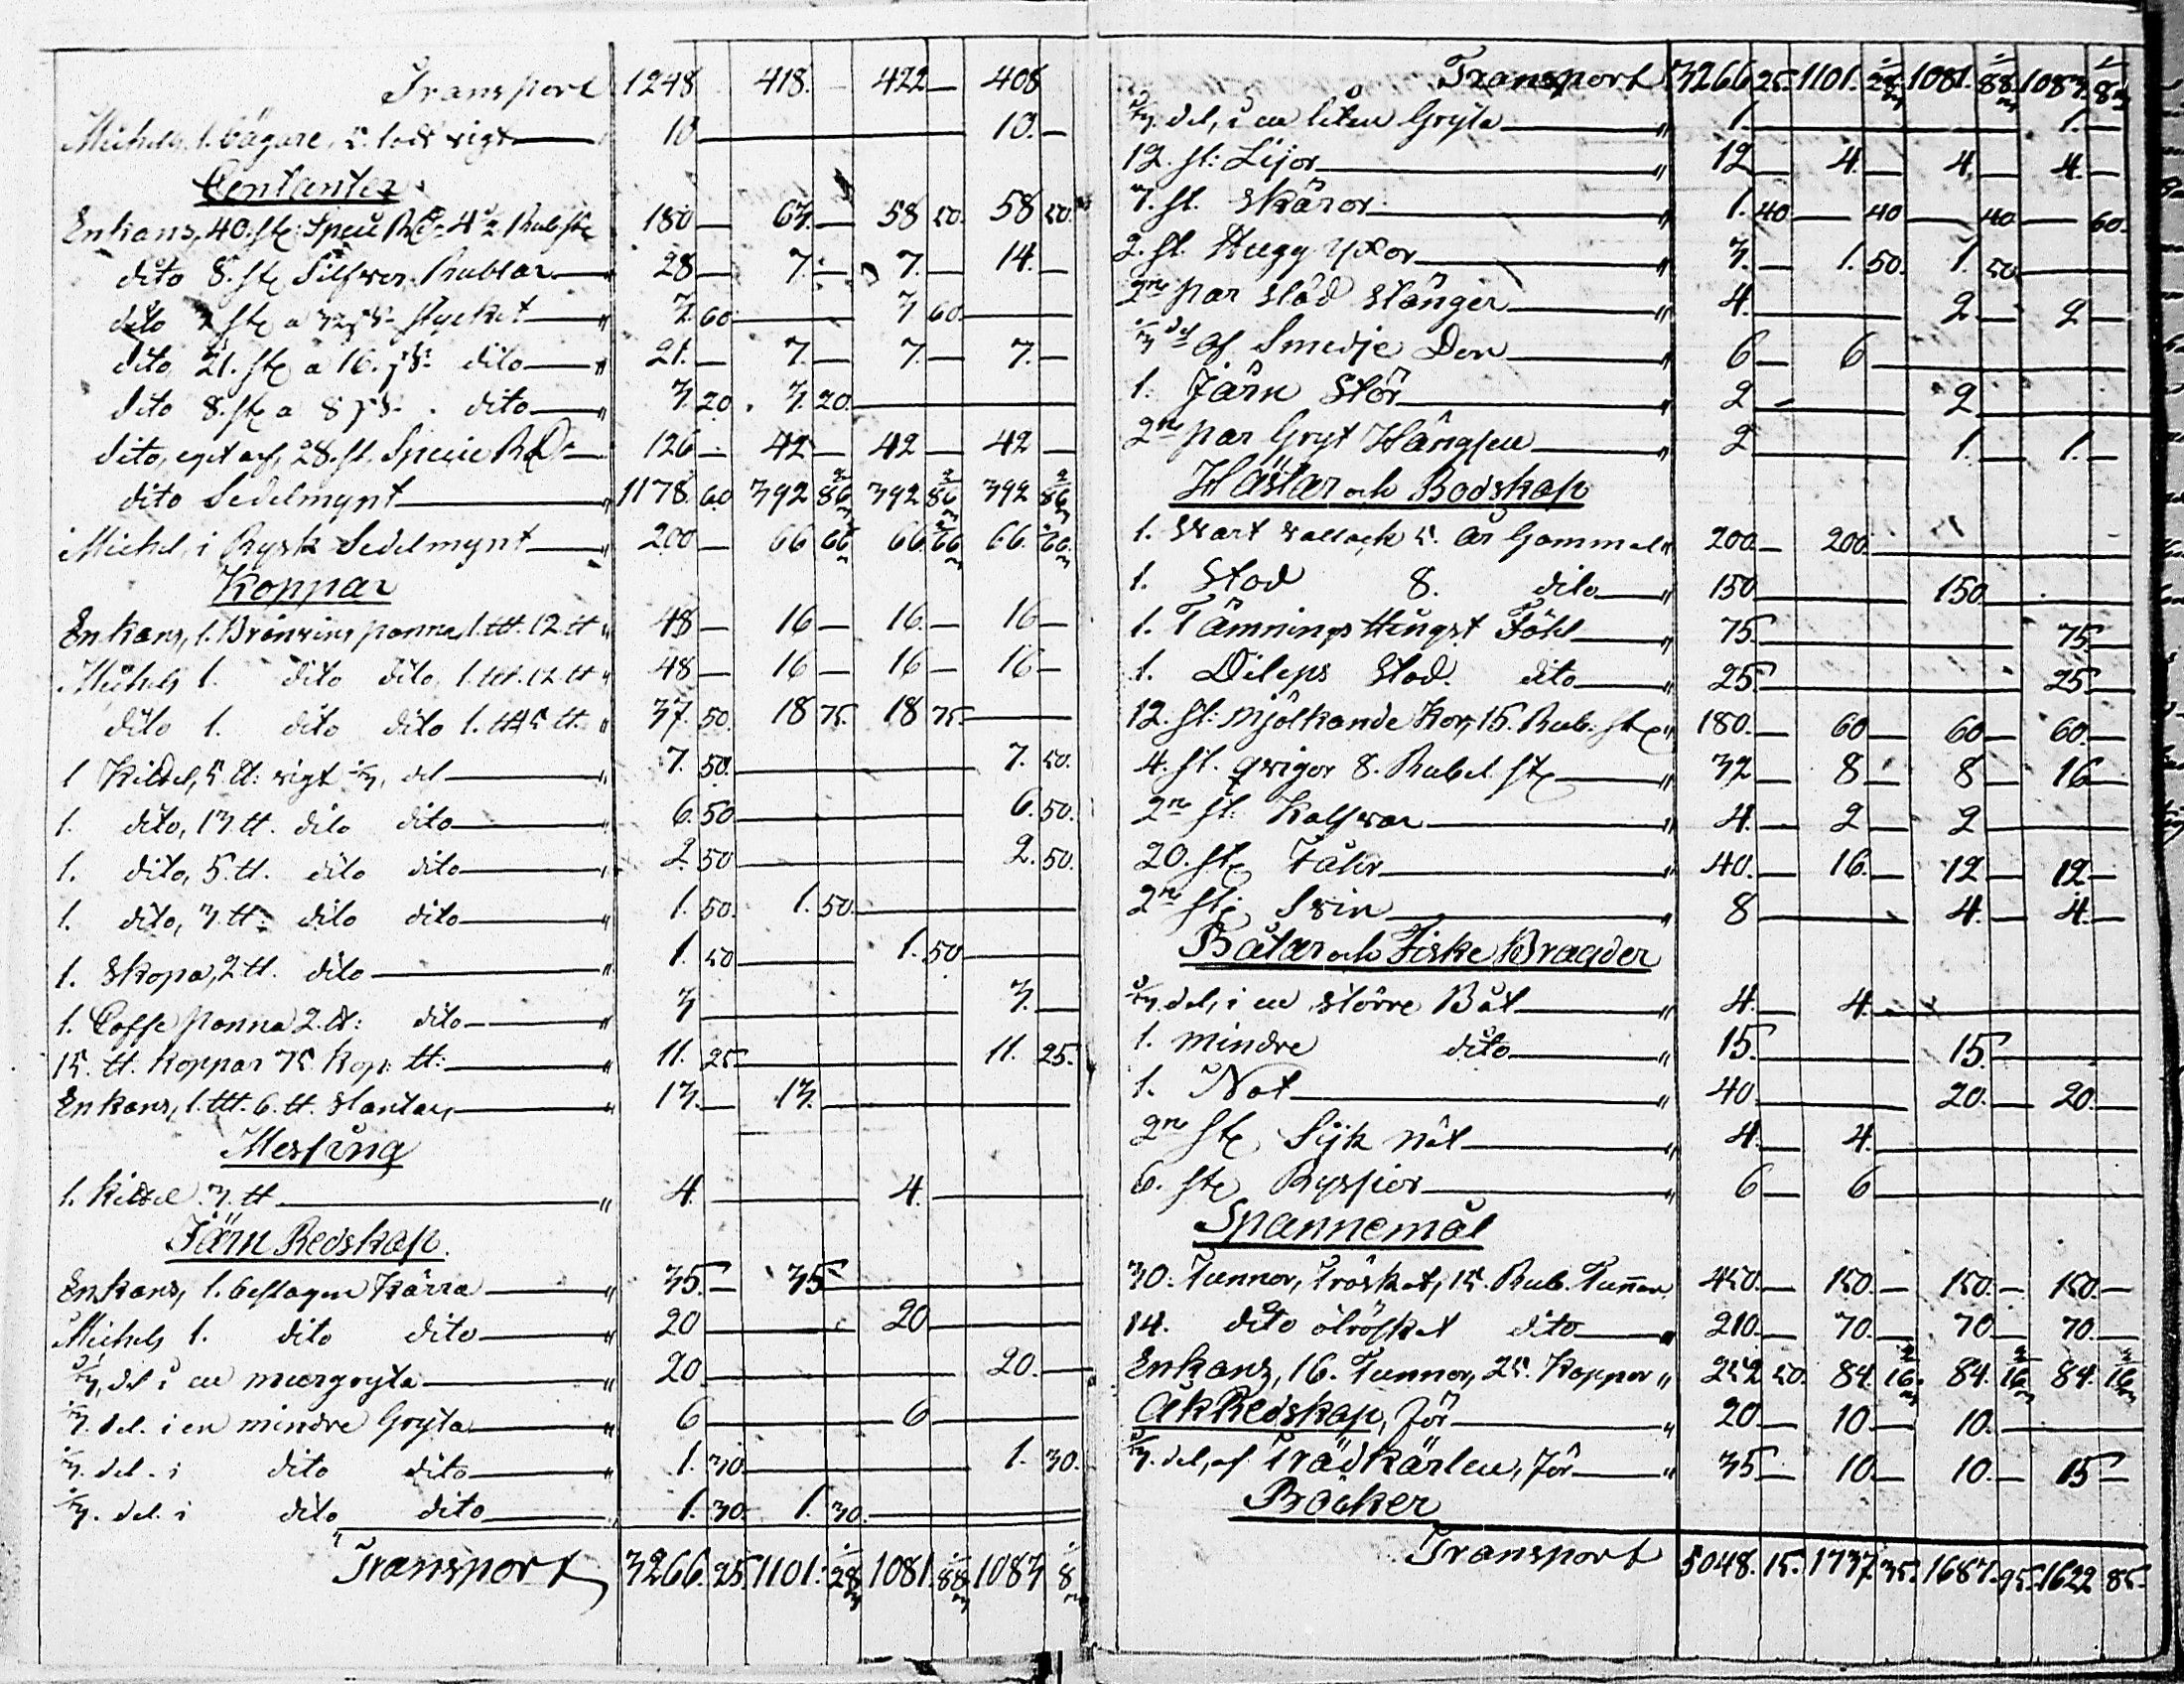 Transport 1248. 418. — 422 — 408
Michels, 1. bägare, 5. lodt vigt — 10 — 10. —
Contanter
Enkans, 40. st. Specie RD. 4½ Rub. st. 180 — 63. — 58 50. 58 50.
dito 8. st. Silfver Rublar — 28 — 7. — 7. — 14. —
dito st. a 32 stycket — " 3. 60. — 3 60. —
dito, 21. st. a 16. dito — " 21. — 7. — 7. — 7. —
dito 8. st. a 8 dito — " 3. 20. 3. 20. —
dito, 28. st. Specie RD. — 126 — 42 — 42 — 42 —
dito Sedelmynt — " 1178. 60 392 86 2/3 392 86 2/3 392 86 2/3
Michels, i Rysk Sedelmynt — 200 — 66 66 2/3 66 66 2/3 66. 66 2/3
Koppar
Enkans, 1. Bränvins panna, 1. ttt. 12. tt " 48 — 16 — 16. — 16 —
Michels 1. dito dito, 1. ttt. 12. tt " 48 — 16 — 16 — 16 —
dito 1. dito dito 1. ttt 5 tt. " 37. 50. 18 75. 18 75. —
1 Kittel, tt: vigt 1/3, del — " 7. 50. — 7. 50.
1. dito, 13. tt. dito dito — " 6. 50 — 6. 50.
1. dito, 5. tt. dito dito — " 2. 50 — 2. 50.
1. dito, 3. tt. dito dito — " 1. 50. 1. 50. —
1. Skopa, 2 tt. dito — " 1. 50 — 1. 50 —
1. Coffe panna 2. tt: dito — " 3 — 3. —
15. tt. Koppar 75 Kop. tt: — " 11. 25 — 11. 25.
Enkans, 1. ttt. 6. tt. slantar, — " 13. — 13. —
Messing
1. kittel 3. tt — " 4. — 4. —
Järn Redskap.
Enkans, 1. beslagen Kärra — " 35. — 35 —
Michels 1. dito dito — " 20 — 20 —
1/3, del i en murgryta — " 20. — 20. —
1/3. del. i en mindre Gryta — " 6 — 6 —
1/3. del. i dito dito — " 1. 30. — 1. 30.
1/3. del. i dito dito — 1. 30. 1. 30. —
Transport 3266. 25. 1101. 28 1/3 1081. 88 1/3 1083 8 1/3
Transport 3266 25. 1101. 28 1/3 1081. 88 1/3 1083. 8 1/3
1/3. del, i en liten Gryta — " 1. — 1. —
12. st: Lijor — " 12 — 4. — 4. — 4. —
7. st. Skäror — " 1. 40 — 40 — 40 — 60.
2. st. Hugg yxor — " 3. — 1. 50. 1. 50 —
2ne par stöd stänger — " 4. — 2 — 2 —
1/3 del af Smedje Don — " 6 — 6 —
1. Järn Stör — " 2 — 2 —
2ne par Gryt Hängslen — " 2 — 1. — 1. —
Hästar och Bodskap
1. Svart vallack 5. år Gammal " 200. — 200. —
1. Stod 8. dito — " 150 — 150 —
1. Tämnings Hingst Föhl — " 75. — 75. —
1. Dileps Stod. dito — " 25. — 25. —
12. st: mjölkande Kor, 15. Rub. st. " 180. — 60 — 60 — 60. —
4. st. qvigor 8. Rubel. st. — " 32 — 8 — 8 — 16 —
2ne st: Kalfvar — " 4. — 2 — 2 —
20. st. Fåhr — " 40. — 16. — 12 — 12 —
2ne st. Svin — " 8 — 4. — 4. —
Båtar och Fiske Bragder
1/3. del, i en större Båt — " 4. — 4. —
1. mindre dito — " 15. — 15. —
1. Not — " 40 — 20. — 20. —
2ne st. Sijk nät — " 4. — 4. —
6. st. Ryssjor — " 6 — 6 —
Spannemål
30. Tunnor, tröskat, 15. Rub. Tunnan 450. — 150. — 150. — 150. —
14. dito otröskat dito — " 210. — 70. — 70 — 70. —
Enkans, 16. Tunnor, 25. Kappor " 252 50. 84. 16 2/3 84. 16 2/3 84. 16 2/3
Åk Redskap, för — " 20 — 10 — 10. —
1/3. del, af Trädkärlen, för — " 35 — 10. — 10. — 15 —
Böcker
Transport 5048. 15. 1737. 35. 1687. 95. 1622 85.